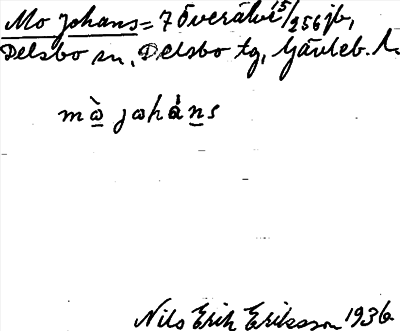 Mo Johans = 7 Överälve 15/256 jb,
Delsbo sn, Delsbo tg, Gävleb. l.
mò̲ johán̲s
Nils Erik Eriksson 1936